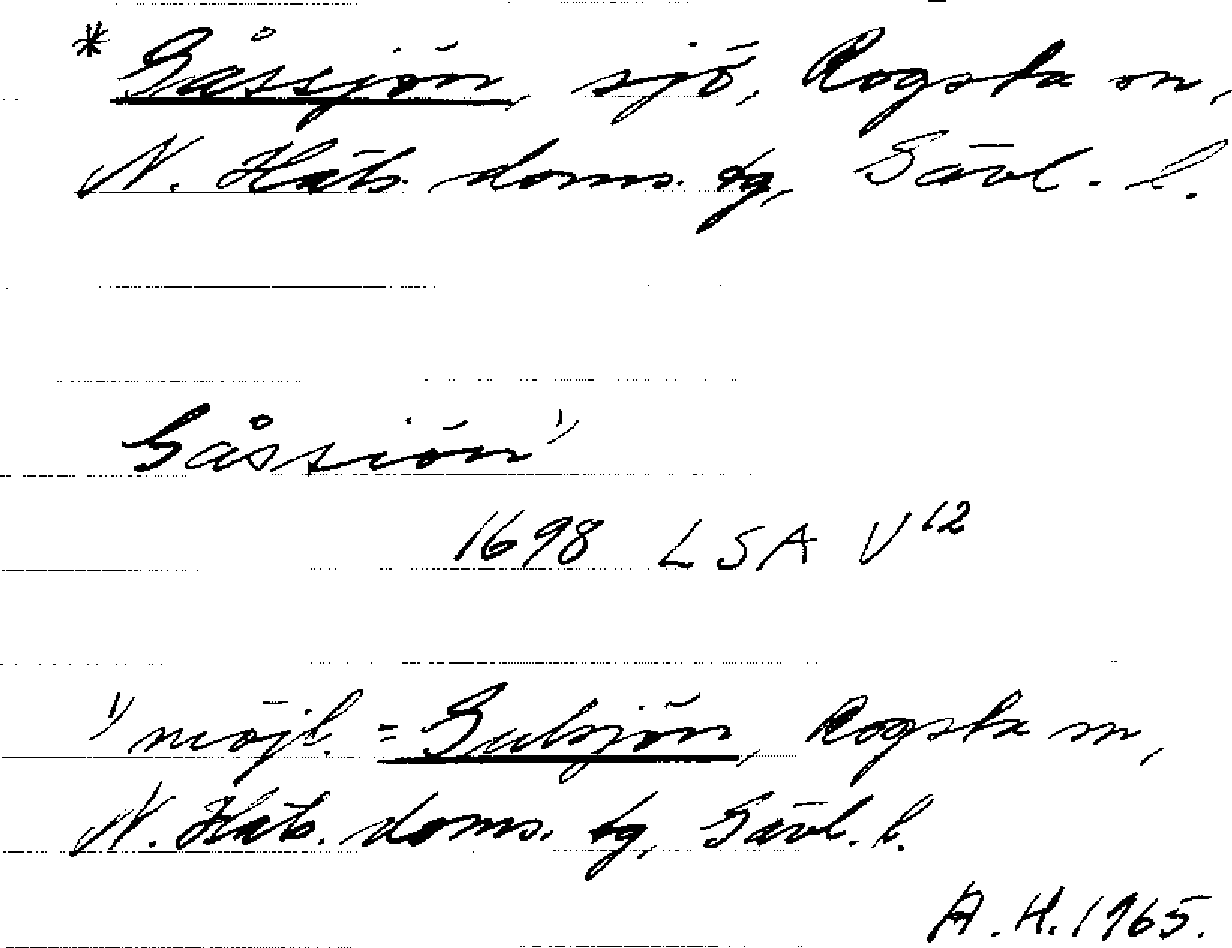 * Gåssjön, sjö, Rogsta sn,
N. Häls. doms. tg, Gävl. l.
Gåssiön 1)
1698 LSA V 12
1) möjl. = Gulsjön, Rogsta sn,
N. Häls. doms. tg, Gävl. l.
A. H. 1965.